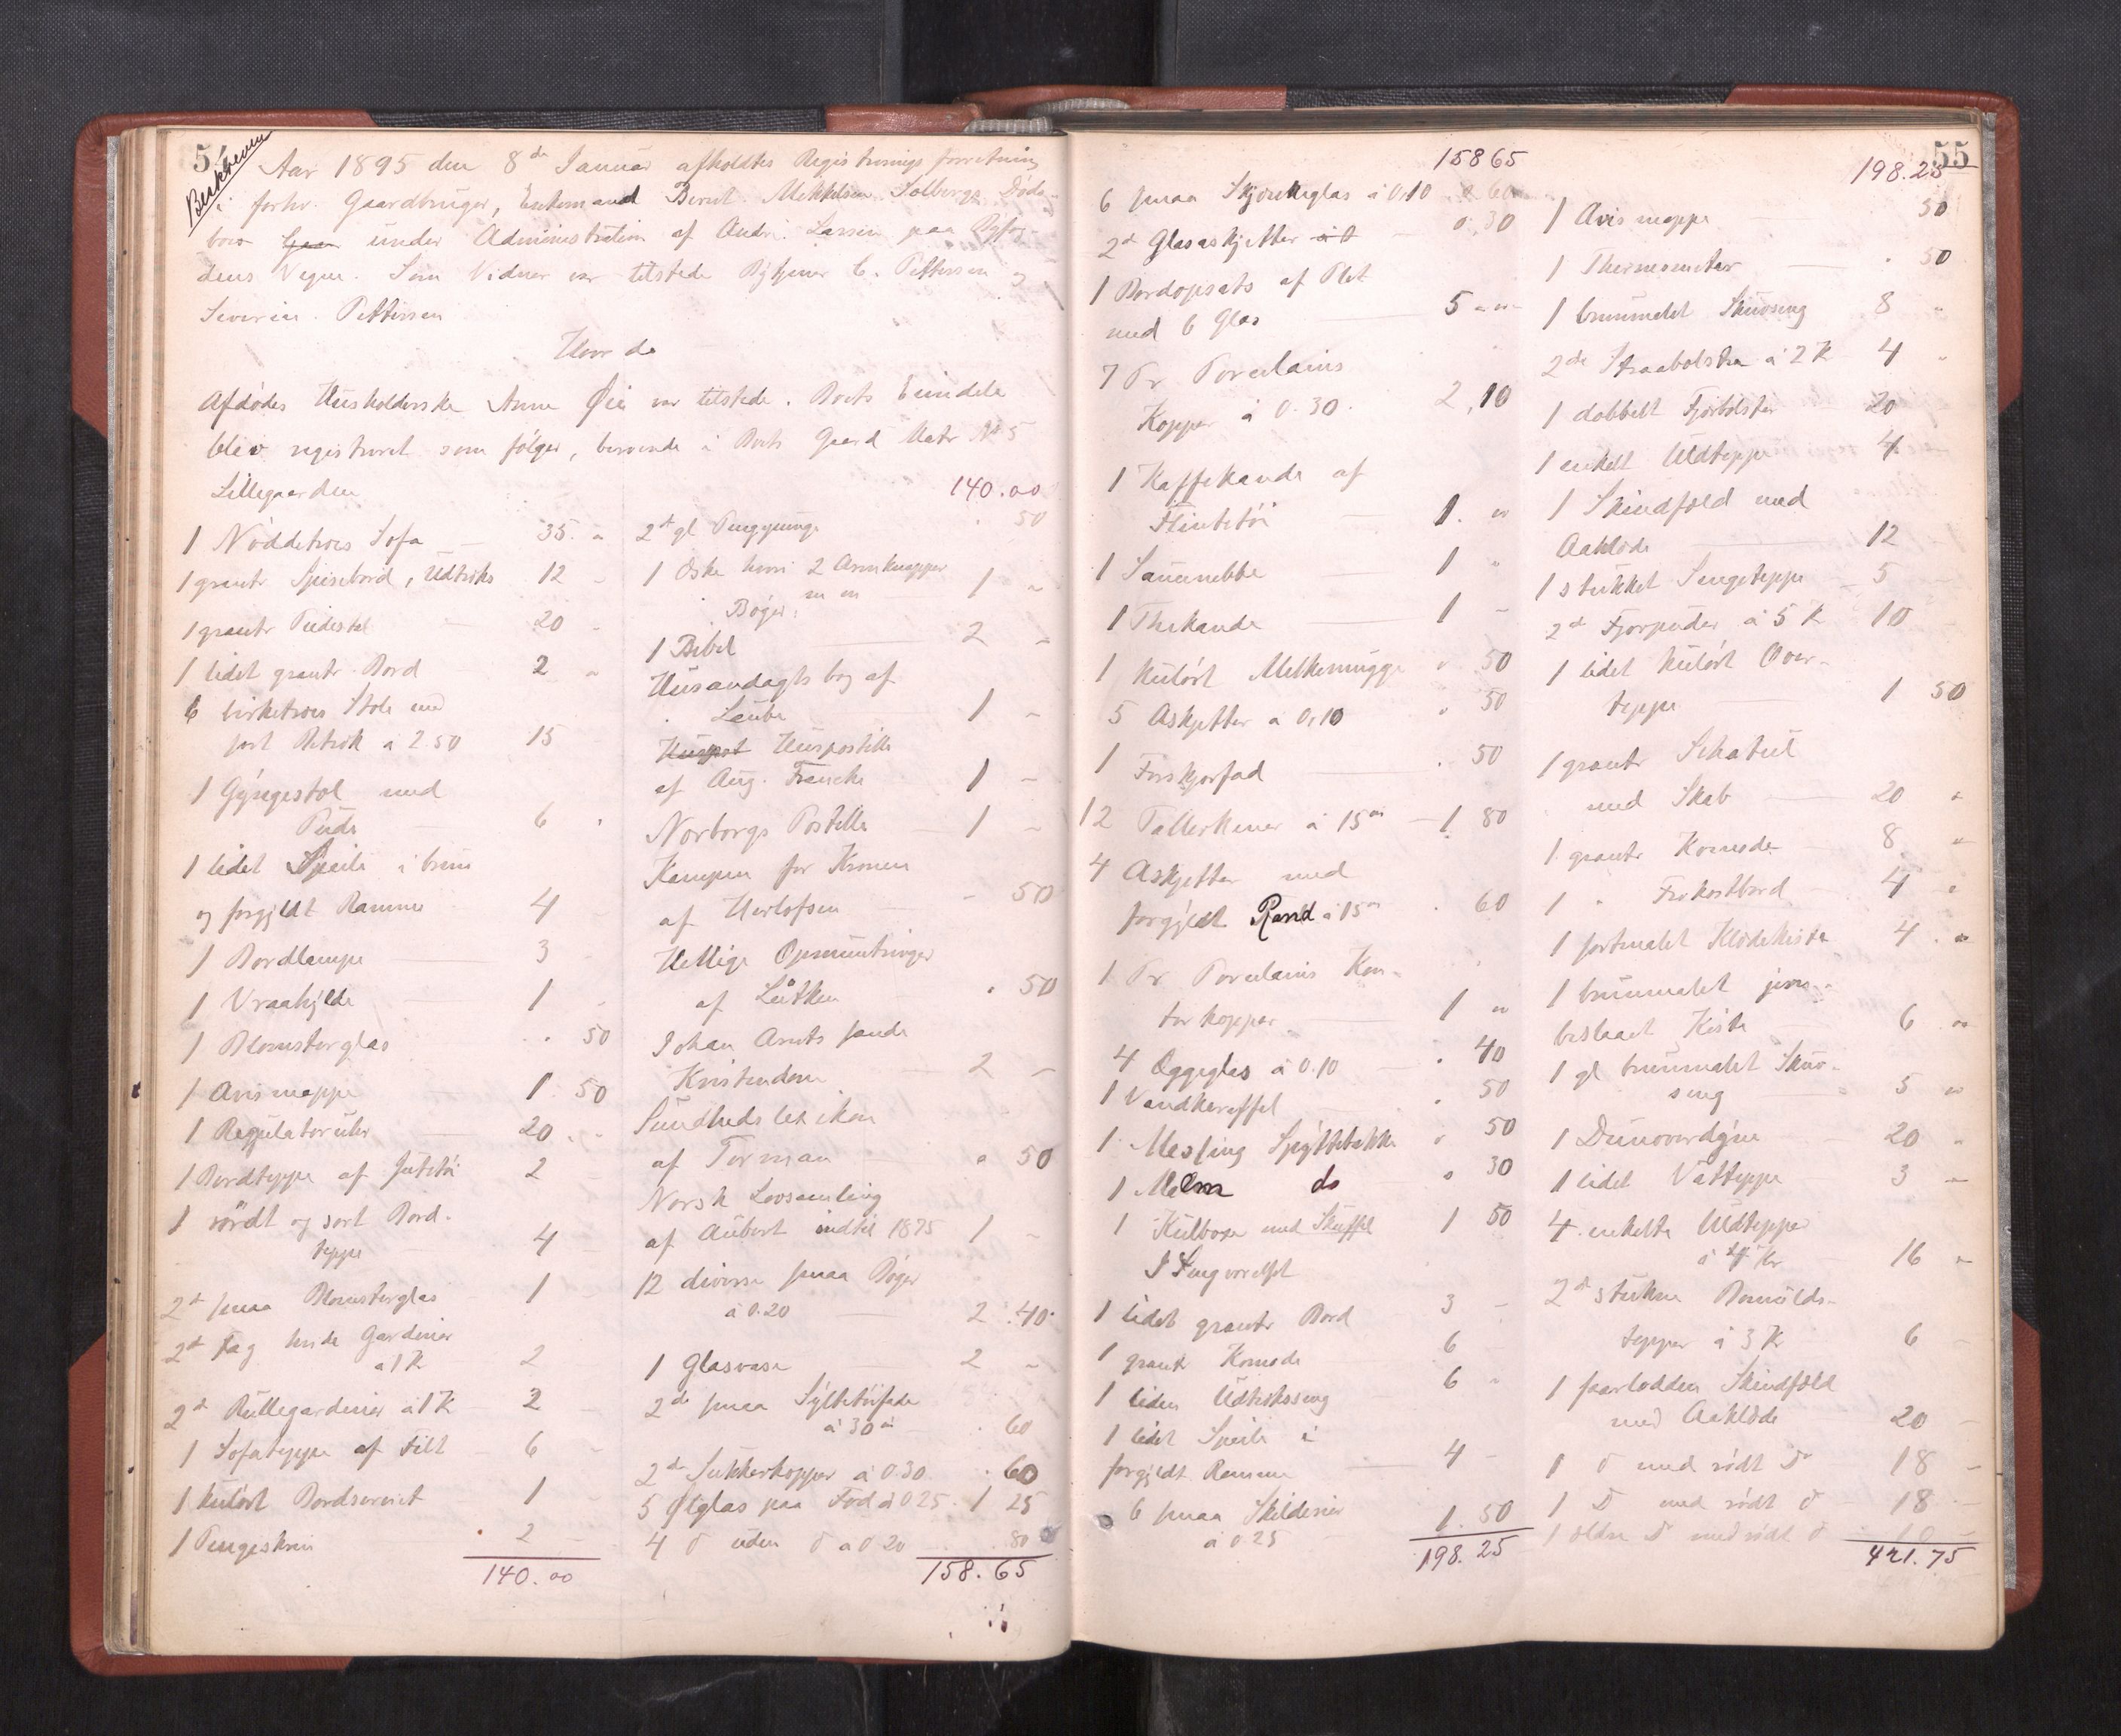 54
Aar 1895 den 8de Januar afholdtes Registreringsforretning
i forhv. Gaardbruger, Enkemand Bernt Mikkelsen Solbergs Døds-
bo under Administration af Andr. Larsen paa Byfog-
dens Vegne. Som Vidner var tilstede C. Pettersen og
Severin Pettersen
Hvorda
Afdødes Husholderske Anne Øie var tilstede. Boets Eiendele
blev registreret som følger, beroende i Boets Gaard Matr No 5
Lillegaarden
1 Nøddetræes Sofa 35. "
1 grantr Spisebord, Udtræks 12 -
1 grantr Piedestal 20 -
1 lidet grantr Bord 2 "
6 birketræes Stole med
sort Betræk a 2.50 15 -
1 Gyngestol med
Pude 6 "
1 lidet Speile i brun
og forgyldt Ramme 4 -
1 Bordlampe 3 -
1 Vraahylde 1 -
1 Blomsterglas " 50
1 Avismappe 1. 50
1 Regulatoruhr 20. "
1 Bordteppe af Jutetøi 2 -
1 rødt og sort Bord-
teppe 4 -
2de smaa Blomsterglas 1
2de Fag hvide Gardiner
a 1 K 2
2de Rullegardiner a 1 K 2 -
1 Sofateppe af Filt 6 -
1 kulørt Bordserviet 1 -
1 Pengeskrin 2 -
140.00
140.00
2de gl Pengepunge . 50
1 Æske hvori 2 Armknapper
m m 1 -
Bøger.
1 Bibel 2 -
Husandagtsbog af
1 -
Huspostille
af Aug. Francke 1 -
Norborgs Postille 1 -
Kampen for Kronen
af Herlofsen - 50
Hellige Opmuntringer
af Lütken . 50
Johan Arnts sande
Kristendom 2 -
Sundheds lexikon
af Torman " 50
Norsk Lovsamling
af Aubert indtil 1875 1 -
12 diverse smaa Bøger
à 0.20 2.40
1 Glasvase 2 -
2de smaa Syltetøifade
à 30 ø . 60
2de Sukkerkopper à 0.30 . 60
5 Ølglas paa Fod à 0.25. 1 25
4 d uden d a 0 20 . 80
158.65
15865
6 smaa Skjænkeglas à 0,10 . 60
2de Glasaskjetter 0.30
1 Bordopsats af Plet
med 6 Glas 5 "
7 Pr Porcelains
Kopper à 0.30. 2,10
1 Kaffekande af
Flintetøi 1. "
1 Sausenebbe 1 "
1 Thekande 1 -
1 kulørt Melkemugge " 50
5 Askjetter a 0,10 " 50
1 Ferskjorfad . 50
12 Tallerkener à 15 ør 1. 80
4 Askjetter med
forgyldt Rand à 15 ør . 60
1 Pr Porcelains Kon-
torkopper 1 "
4 Æggeglas à 0.10 . 40
1 Vandkaraffel . 50
1 Messing Spyttebakke " 50
1 Malm do " 30
1 Kulboxe med Skuffel 1 50
I Sengeværelset
1 lidet grantr Bord 3 -
1 grantr Komode 6
1 liden Udtræksseng 6 "
1 lidet Speile i
forgyldt Ramme 4 -
6 smaa Skilderier
à 0.25 1.50
198.25
55
198.25
1 Avismappe 50
1 Thermometer . 50
1 brunmalet Skuvseng 8 "
2de Straabolstre à 2 K 4 "
1 dobbelt Fjørbolster 20
1 enkelt Uldteppe 4
1 Skindfæld med
Aaklæde 12
1 stukket Sengeteppe 5
2de Fjørpuder à 5 K 10
1 lidet kulørt Over-
teppe 1 50
1 grantr Schatul
med Skab 20 "
1 grantr Komode 8 "
1 " Frokostbord 4 "
1 sortmalet Klædekiste 4 . "
1 brunmalet jern-
beslaaet Kiste 6 "
1 gl brunmalet Skuv-
seng 5 "
1 Dunoverdyne 20 "
1 lidet Vatteppe 3 -
4 enkelte Uldtepper
à 4 Kr 16 "
2de stukne Bomulds-
tepper à 3 K 6 -
1 faarlodden Skindfæld
med Aaklæde 20 -
1 d med rødt do 18 -
1 D med rødt d 18 -
1 ældre D med rødt d 10 -
421.75